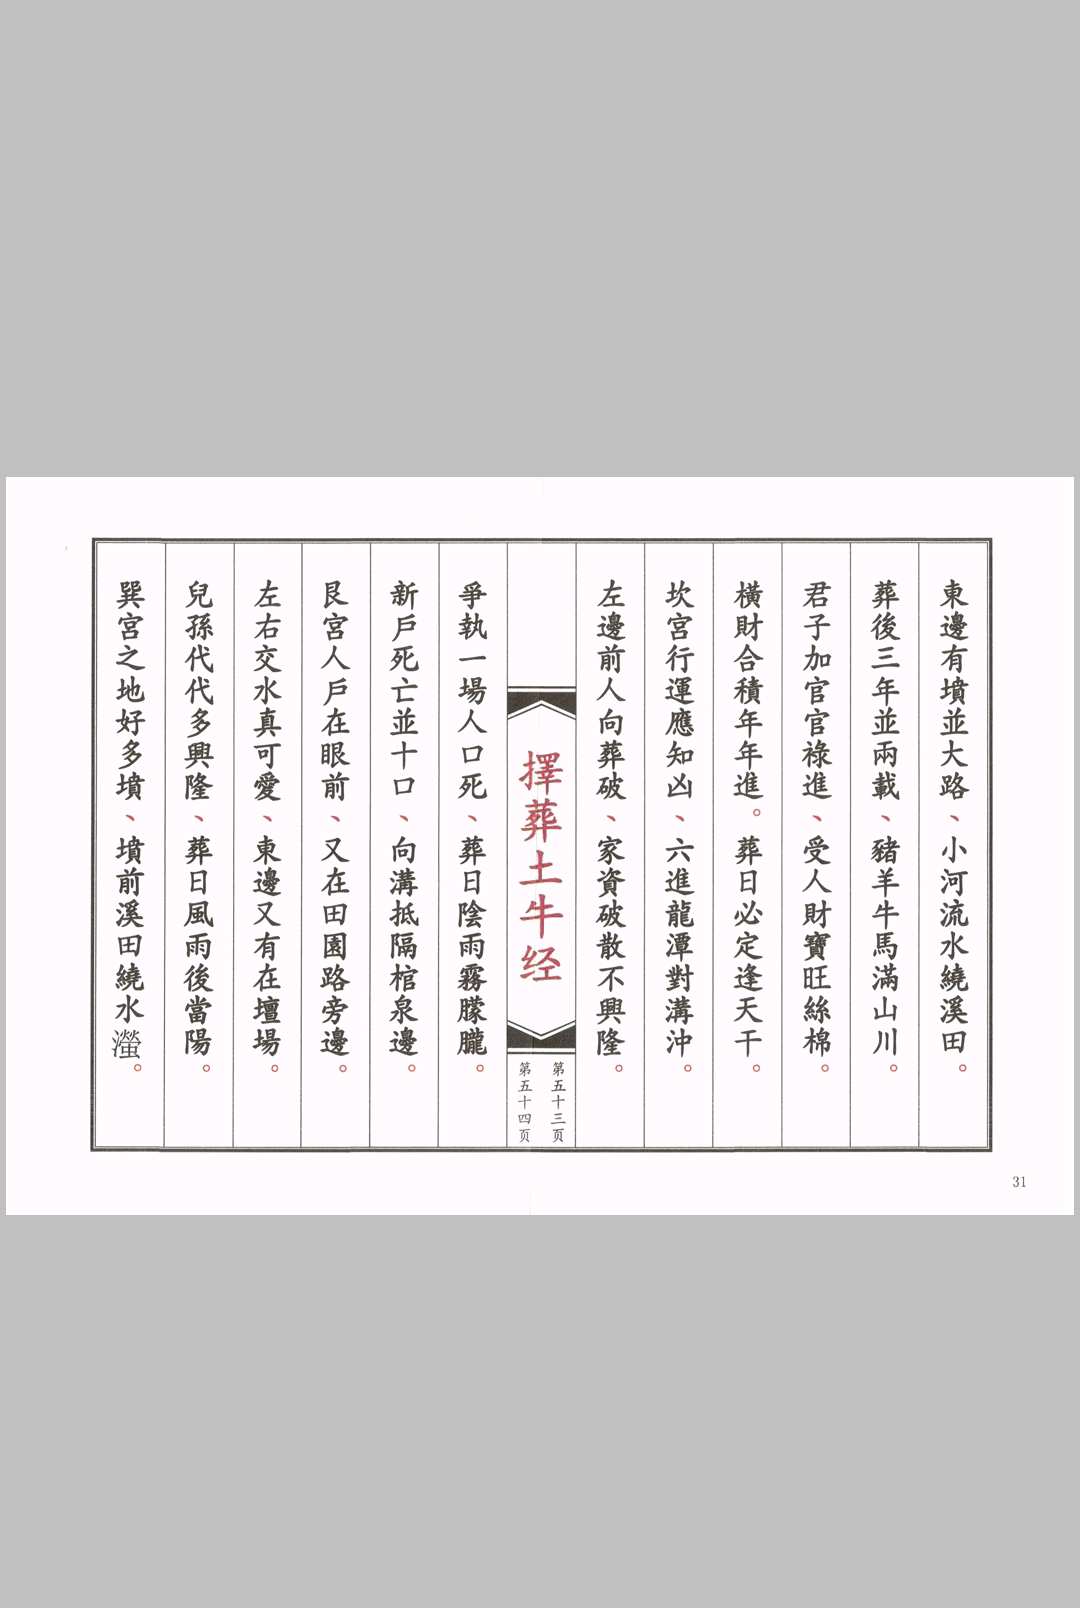 東邊有墳並大路、小河流水繞溪田。
葬後三年並兩載、豬羊牛馬滿山川。
君子加官官祿進、受人財寶旺絲棉。
橫財合積年年進。葬日必定逢天干。
坎宮行運應知凶、六進龍潭對溝沖。
左邊前人向葬破、家資破散不興隆。
擇葬土牛经
第五十三页
第五十四页
爭執一場人口死、葬日陰雨霧朦朧。
新戶死亡並十口、向溝抵隔棺泉邊。
艮宮人戶在眼前、又在田園路旁邊。
左右交水真可愛、東邊又有在壇場。
兒孫代代多興隆、葬日風雨後當陽。
巽宮之地好多墳、墳前溪田繞水瀅。
31